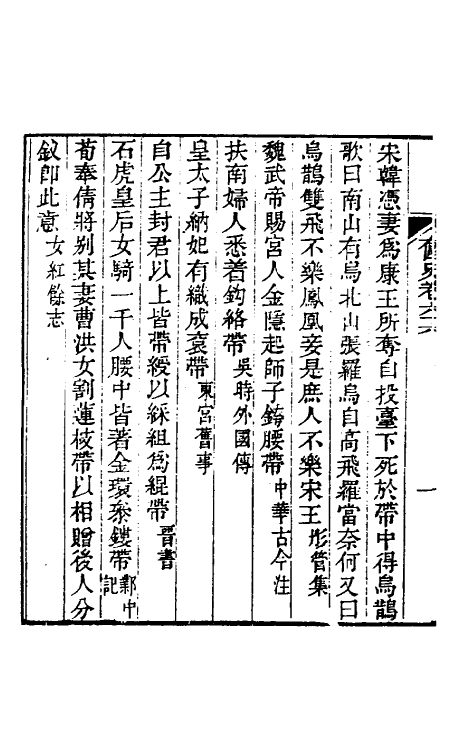 奩史卷六六
一
宋韓憑妻爲康王所奪自投臺下死於帶中得烏鵲
歌曰南山有烏北山張羅烏自高飛羅當奈何又曰
烏鵲雙飛不樂鳳凰妾是庶人不樂宋王彤管集
魏武帝賜宮人金隱起師子銙腰帶中華古今注
扶南婦人悉着鈎絡帶吳時外國傳
皇太子納妃有織成衮帶東宮舊事
自公主封君以上皆帶綬以綵組爲緄帶晋書
石虎皇后女騎一千人腰中皆著金環參鏤帶鄴中記
荀奉倩將别其妻曹洪女割蓮枝帶以相贈後人分
釵卽此意女紅餘志